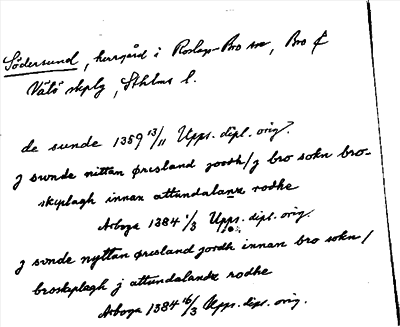 Södersund, herrgård i Roslags-Bro sn, Bro &
Vätö skplg, Sthlms l.
de sunde 1359 13/11 Upps. dipl. orig.
j swnde nittan øresland jordh / j bro sokn bro-
skeplagh innan attundalanz rodhe
Arboga 1384 1/3 Upps. dipl. orig.
j svnde nyttan øresland jordh innan bro sokn /
broskeplagh j attundalandz rodhe
Arboga 1384 16/3 Upps. dipl. orig.